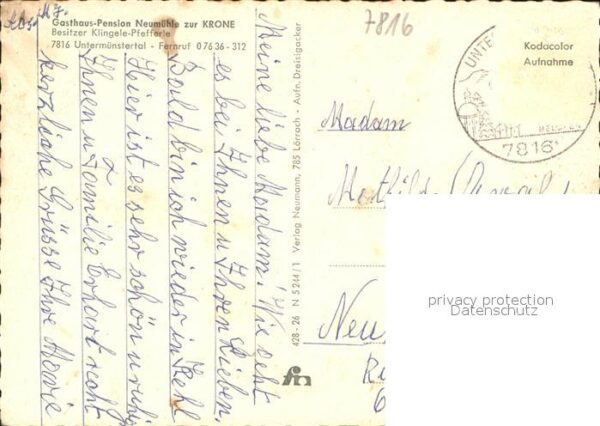 Gasthaus-Pension Neumühle zur KRONE
Besitzer Klingele-Pfefferle
7816 Untermünstertal - Fernruf 0 76 36 - 312
Meine liebe Madam! Wie geht
es bei Ihnen u Ihren Lieben.
Bald bin ich wieder in Kehl
Hier ist es sehr schön u ruhig
Ihnen u Familie Erhart recht
herzliche Grüsse Ihre
428 - 26 N 5244/1 Verlag Neumann, 785 Lörrach - Aufn. Dreisigacker
fn
7816
UNTE
7816
Kodacolor
Aufnahme
Madam
Neu
privacy protection
Datenschutz